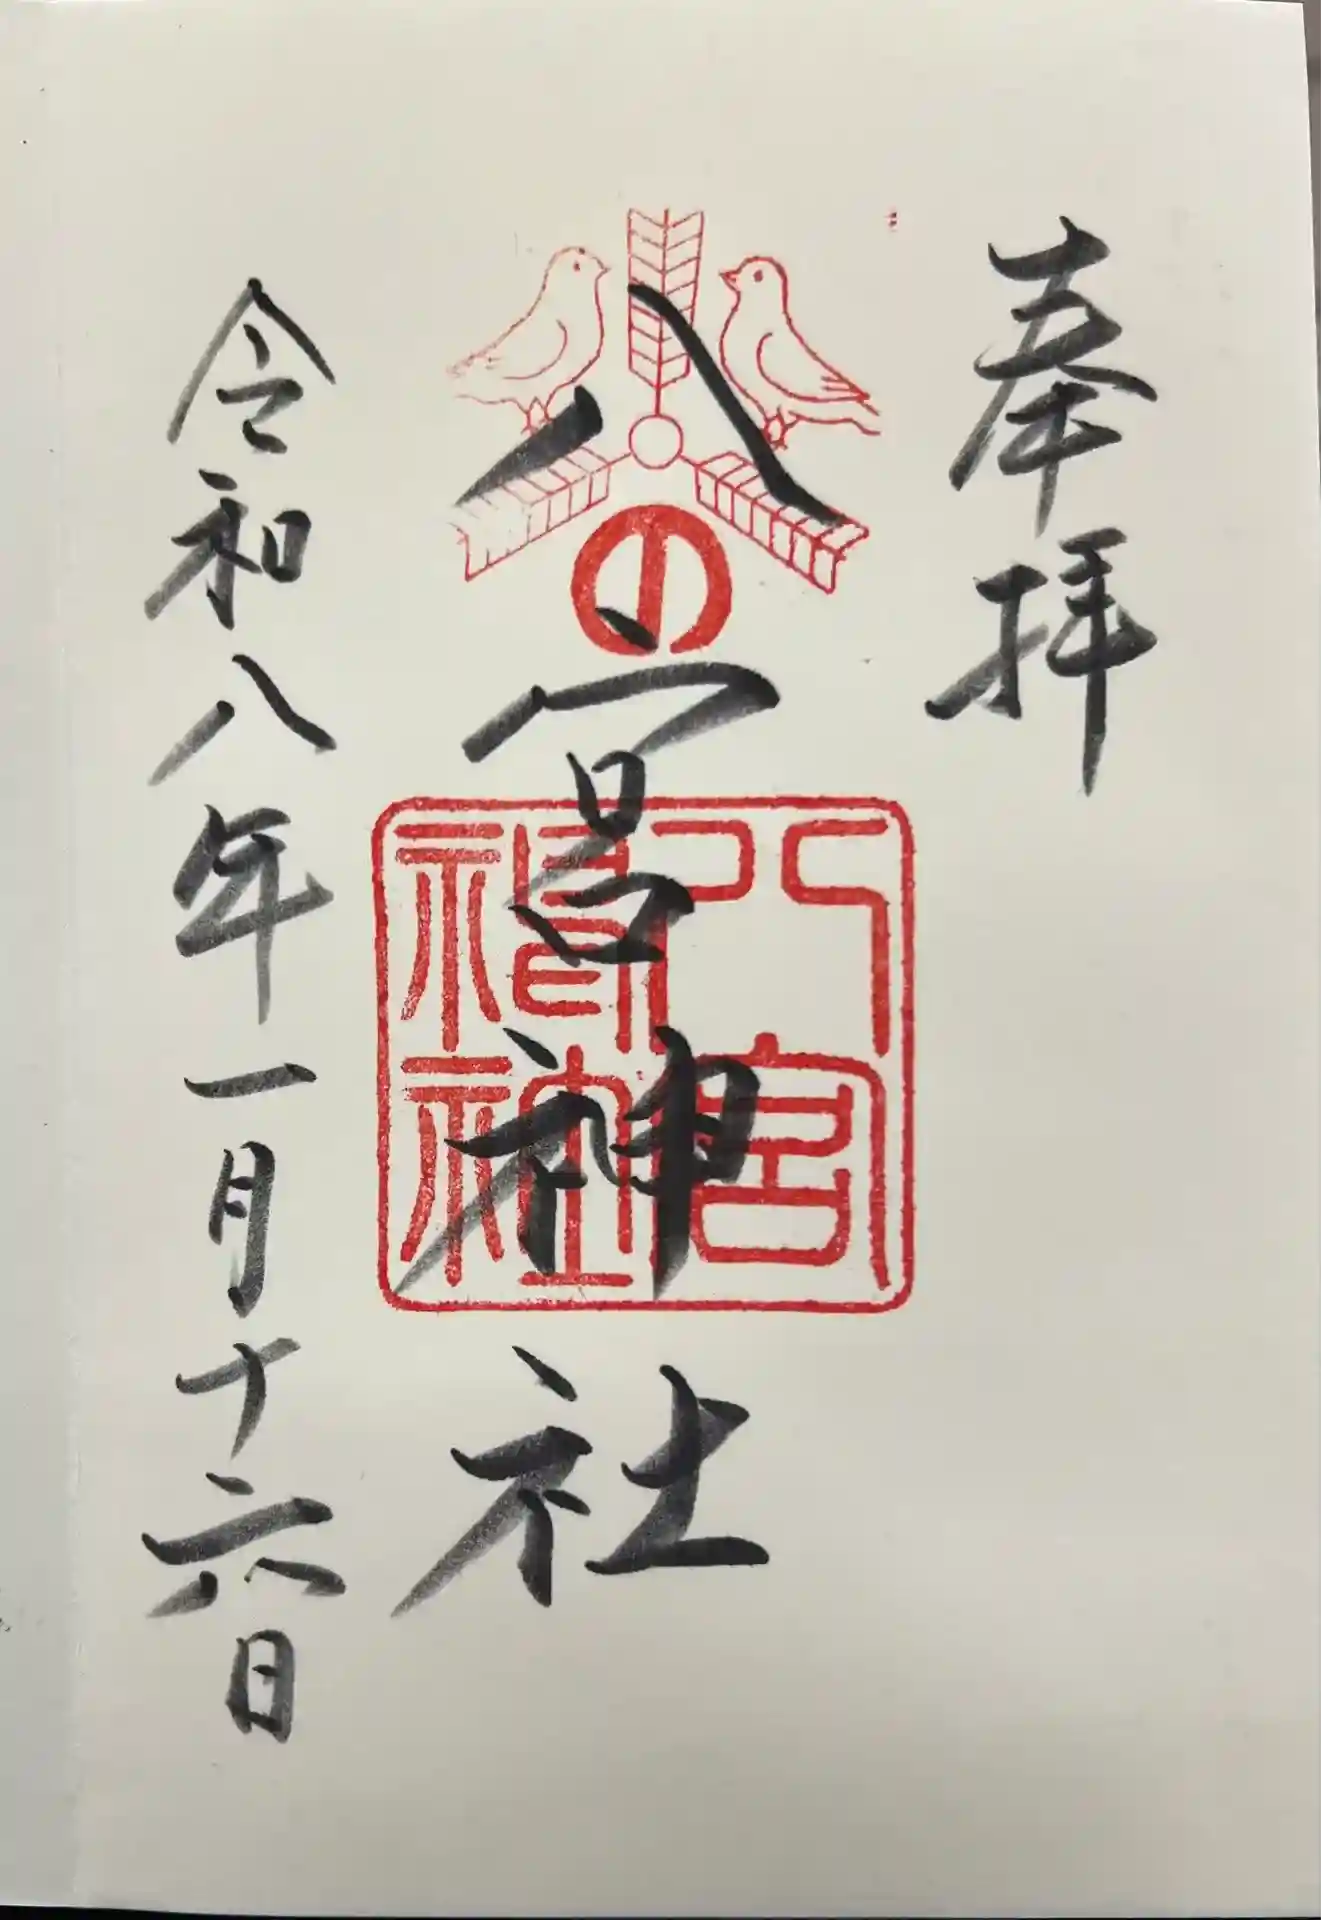 奉拝
八宮神社
の
八宮神社
令和八年一月十六日